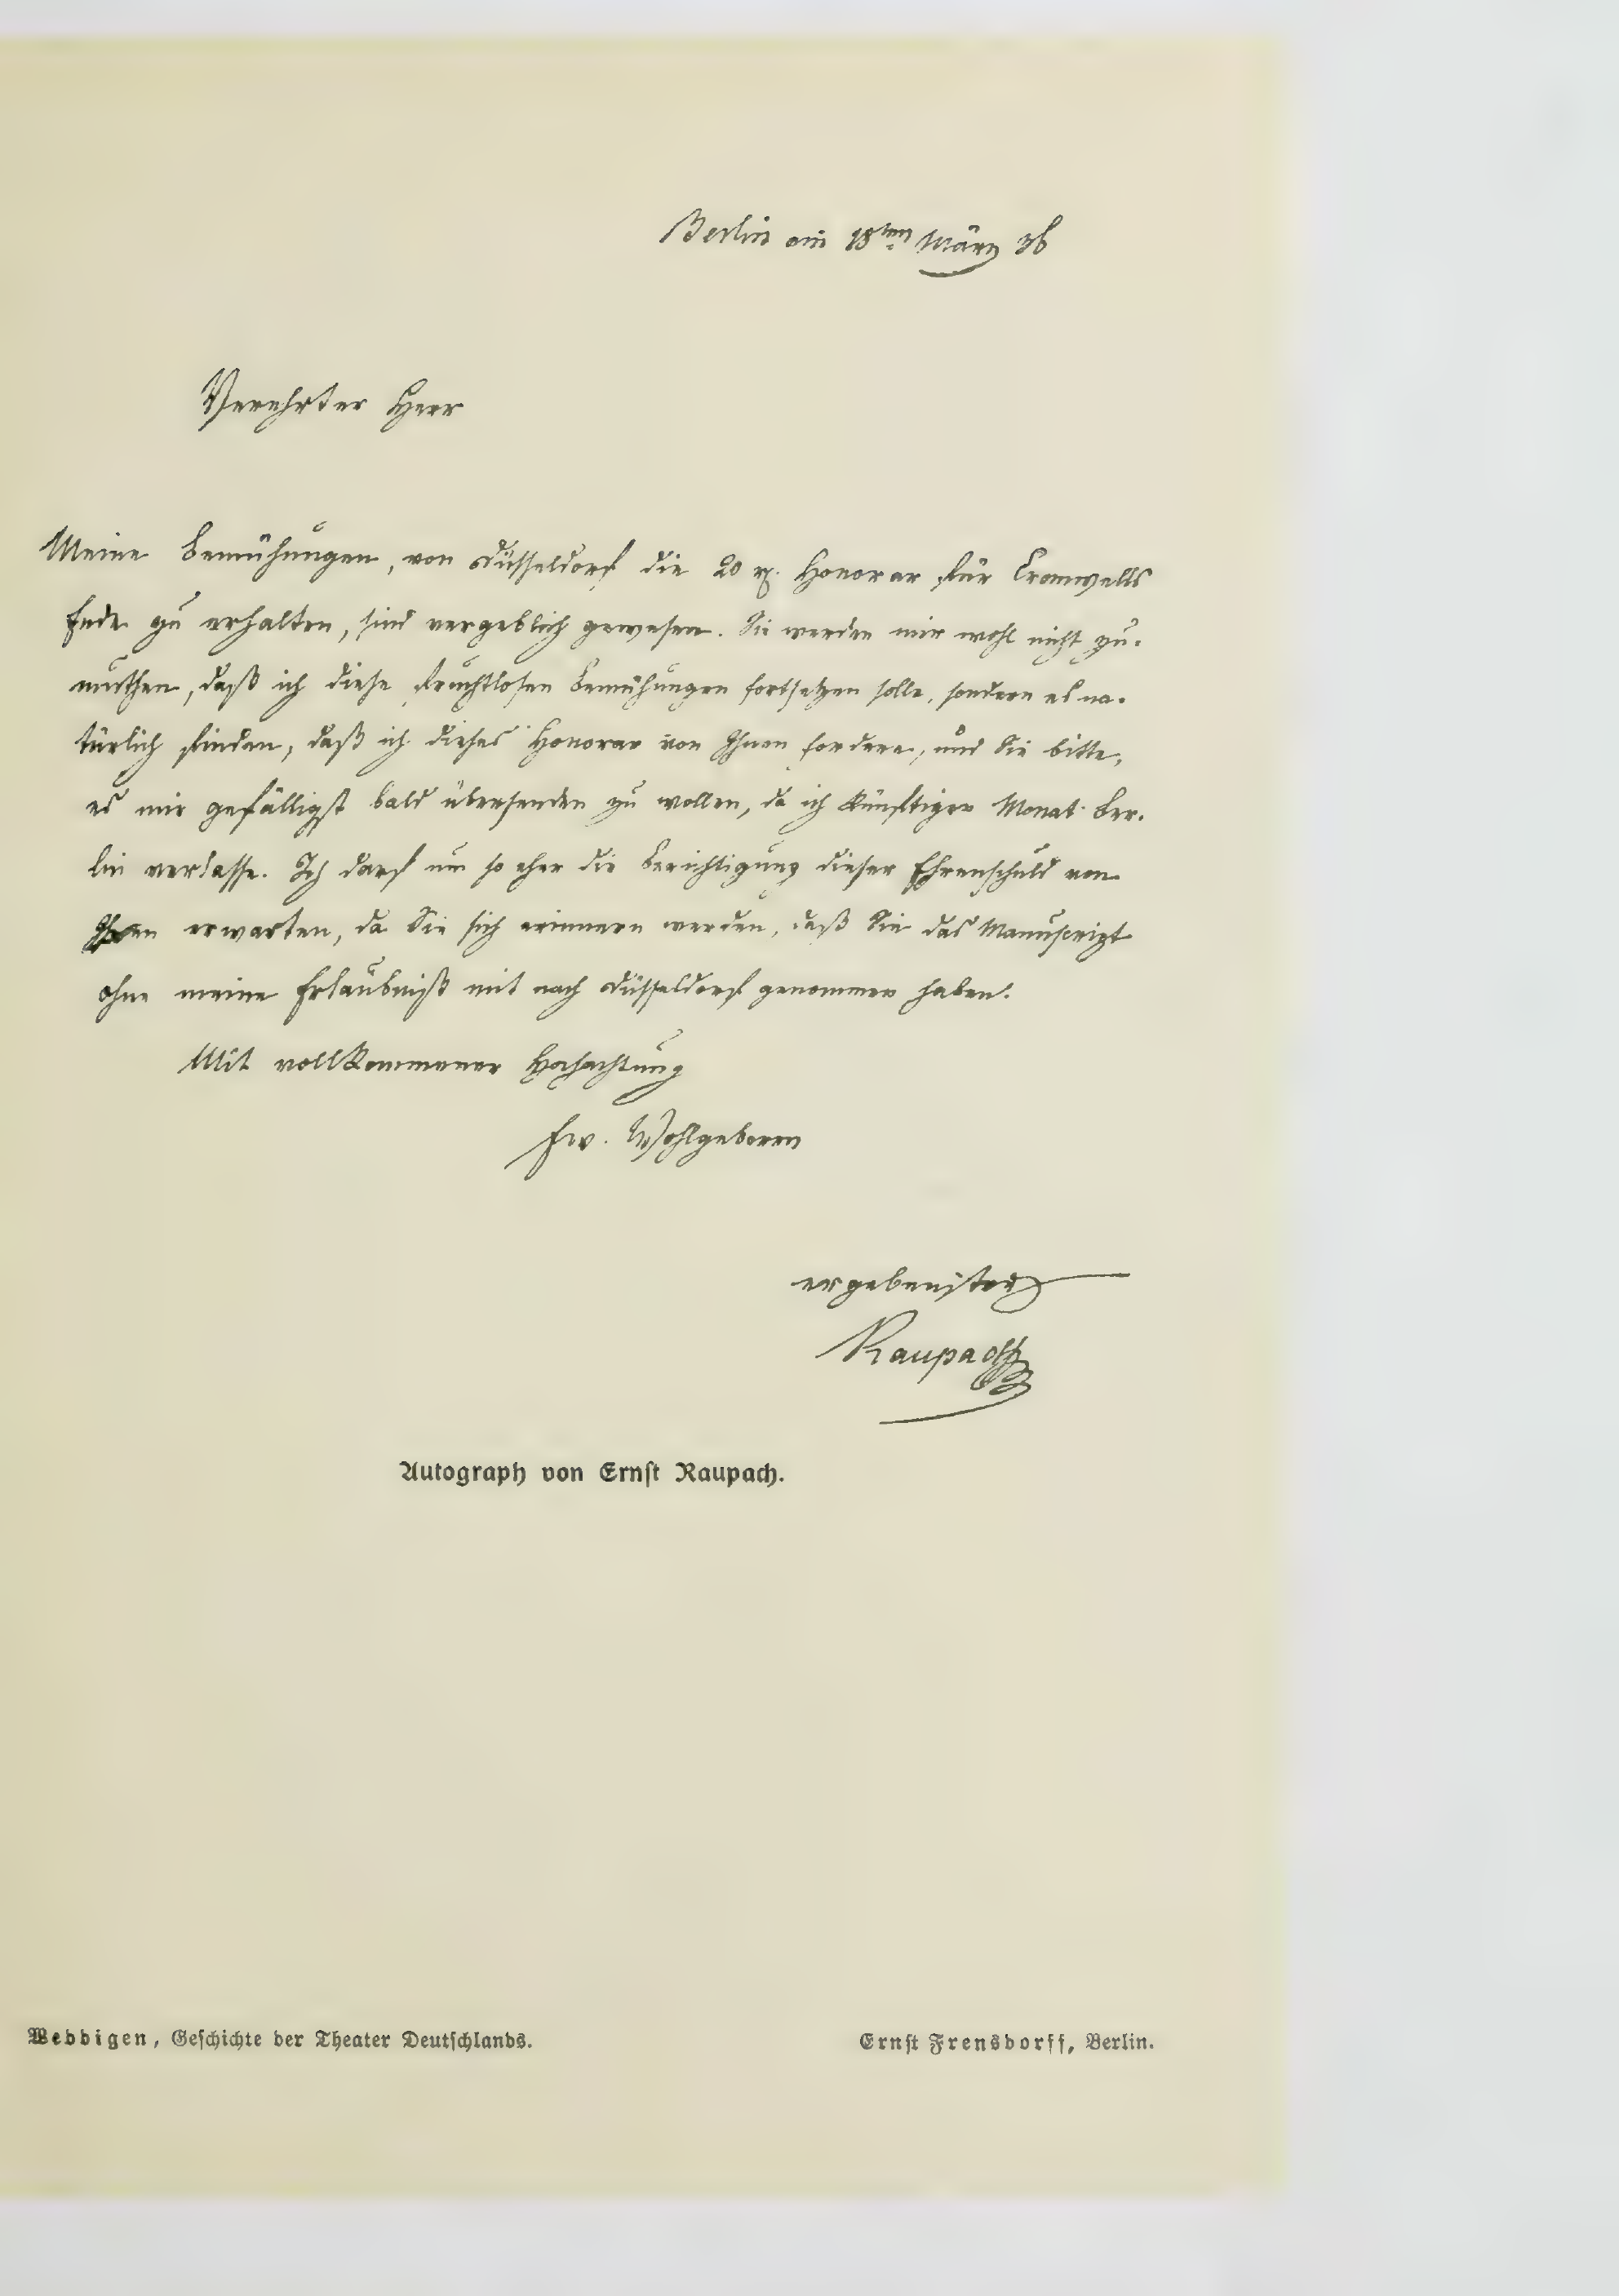 Berlin am 18ten März 36
Verehrter Herr
Meine Bemühungen, von Düsseldorf die 20 rx. Honorar für Cromwells
Ende zu erhalten, sind vergeblich gewesen. Sie werden mir wohl nicht zu-
muthen, daß ich diese fruchtlosen Bemühungen fortsetzen solle, sondern es na-
türlich finden, daß ich dieses Honorar von Ihnen fordere, und Sie bitte,
es mir gefälligst bald übersenden zu wollen, da ich künftigen Monat Ber-
lin verlasse. Ich darf um so eher die Berichtigung dieser Ehrenschuld von
Ihnen erwarten, da Sie sich erinnern werden, daß Sie das Manuscript
ohne meine Erlaubniß mit nach Düsseldorf genommen haben.
Mit vollkommener Hochachtung
Ew. Wohlgeboren
ergebenster
Raupach
Autograph von Ernst Raupach.
Weddigen, Geschichte der Theater Deutschlands.
Ernst Frensdorff, Berlin.